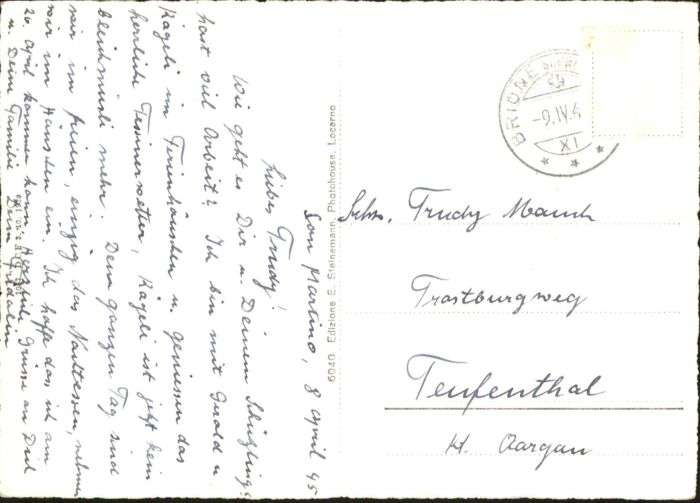 San Martino, 8 April 45
Liebes Trudy!
Wie geht es Dir u. Deinem Schützling?
hast viel Arbeit? Ich bin mit Gerold u.
Rägeli im Ferienhäuschen u. geniessen das
herrliche Tessinerwetter, Rägeli ist jetzt kein
Bleichmüsli mehr. Den ganzen Tag sind
wir im freien, einzig das Nachtessen, nehmen
wir im Häuschen ein. Ich hoffe das ich am
20 April kommen kann. Herzliche Grüsse an Dich
u. Deine Familie Dein
6040 Edizione E. Steinemann, Photohouse, Locarno
BRIONE
-9.IV.4
XI
Schw. Trudy Mauch
Trostburgweg
Teufenthal
Kt. Aargau